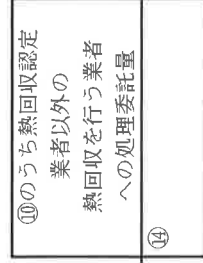 ⑩のうち熱回収認定
業者以外の
熱回収を行う業者
への処理委託量
⑭